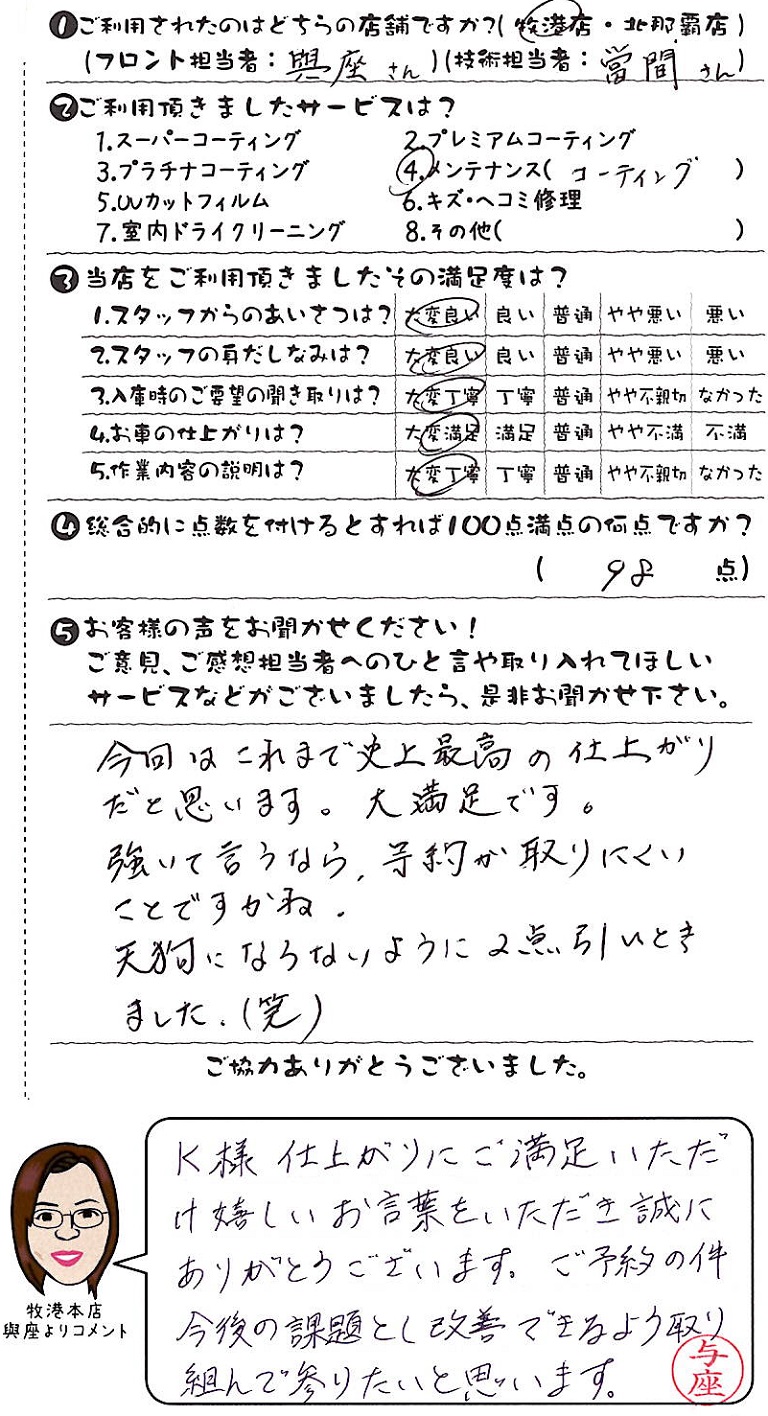 ❶ご利用されたのはどちらの店舗ですか?(牧港店・北那覇店)
(フロント担当者:與座さん)(技術担当者:當間さん)
❷ご利用頂きましたサービスは?
1.スーパーコーティング 2.プレミアムコーティング
3.プラチナコーティング 4.メンテナンス(コーティング)
5.UVカットフィルム 6.キズ・ヘコミ修理
7.室内ドライクリーニング 8.その他( )
❸当店をご利用頂きましたその満足度は?
1.スタッフからのあいさつは? 大変良い 良い 普通 やや悪い 悪い
2.スタッフの身だしなみは? 大変良い 良い 普通 やや悪い 悪い
3.入庫時のご要望の聞き取りは? 大変丁寧 丁寧 普通 やや不親切 なかった
4.お車の仕上がりは? 大変満足 満足 普通 やや不満 不満
5.作業内容の説明は? 大変丁寧 丁寧 普通 やや不親切 なかった
❹総合的に点数を付けるとすれば100点満点の何点ですか?
(98点)
❺お客様の声をお聞かせください!
ご意見、ご感想担当者へのひと言や取り入れてほしい
サービスなどがございましたら、是非お聞かせ下さい。
今回はこれまで史上最高の仕上がり
だと思います。大満足です。
強いて言うなら、予約が取りにくい
ことですかね。
天狗にならないように2点引いとき
ました。(笑)
ご協力ありがとうございました。
K様 仕上がりにご満足いただ
け嬉しいお言葉をいただき誠に
ありがとうございます。ご予約の件
今後の課題とし改善できるよう取り
組んで参りたいと思います。
与座
牧港本店
與座よりコメント